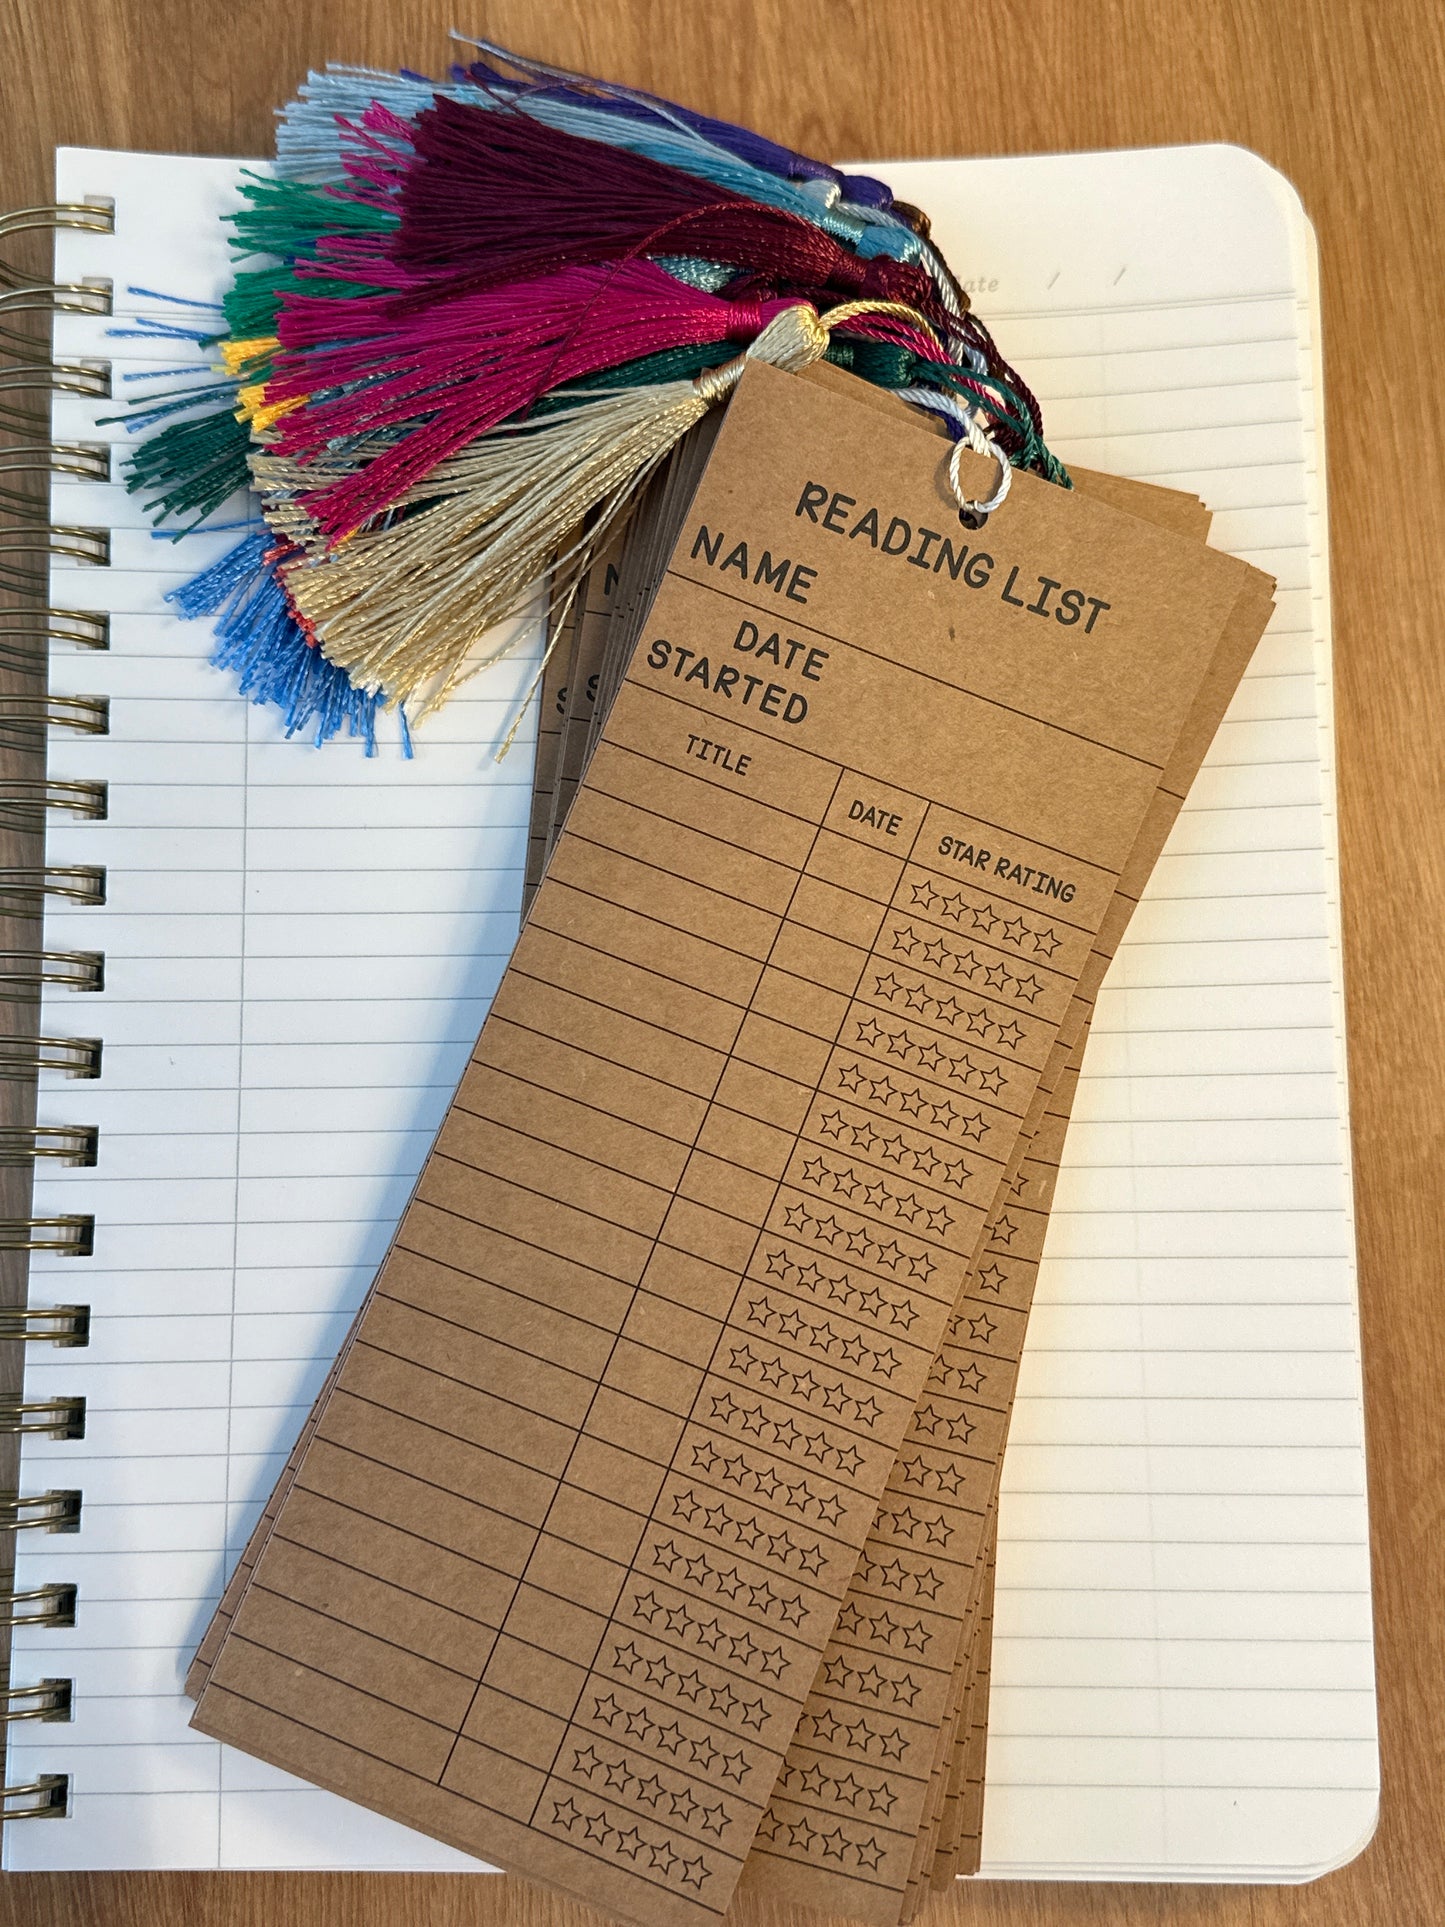 READING LIST
NAME
DATE
STARTED
TITLE
DATE
STAR RATING